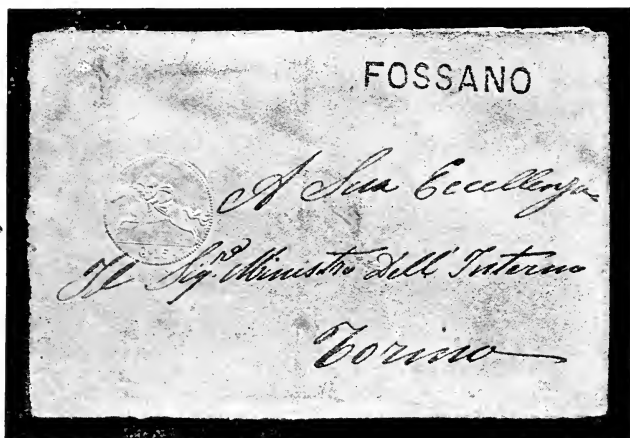 FOSSANO
A Sua Eccellenza
Il Sig.ro Ministro Dell' Interno
Torino